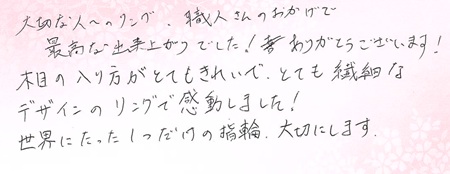 大切な人へのリング、職人さんのおかげで
最高な出来上がりでした！ありがとうございます！
木目の入り方がとてもきれいで、とても繊細な
デザインのリングで感動しました！
世界にたった1つだけの指輪、大切にします。